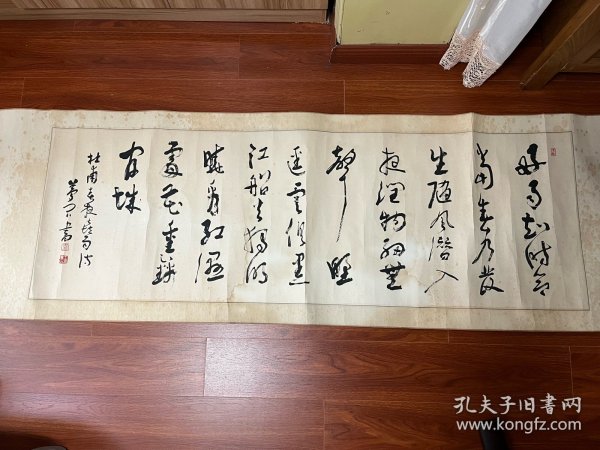 好雨知时节
當春乃發
生随風潜入
夜润物细無
聲野
迳雲俱黑
江船火独明
晓看红湿
處花重錦
官城
杜甫春夜喜雨诗
书
孔夫子旧书网
www.kongfz.com